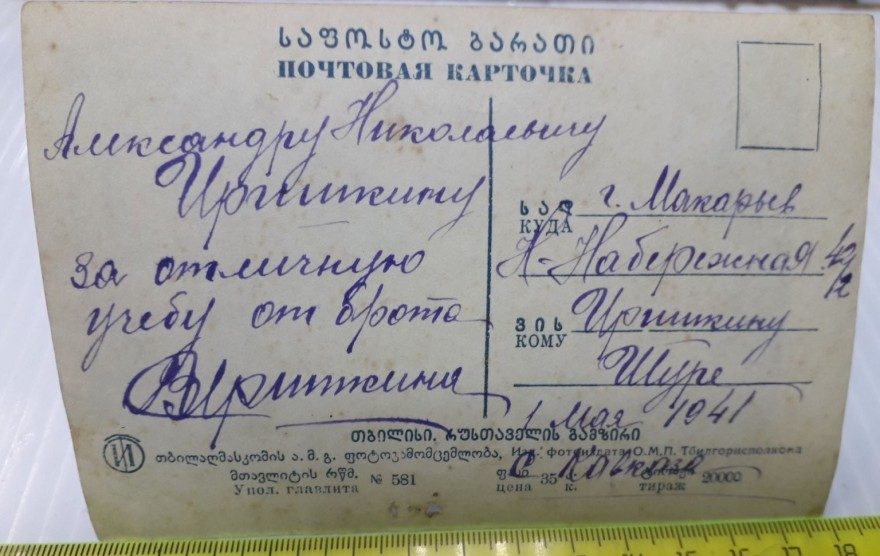 ᲡᲐᲤᲝᲡᲢᲝ ᲑᲐᲠᲐᲗᲘ
ПОЧТОВАЯ КАРТОЧКА
Александру Николаевичу
Иришкину
за отличную
учебу от брата
ВИришкина
ᲡᲐᲓ
КУДА
г. Макарьев
Н-Набережная 42/12
ᲕᲘᲡ
КОМУ
Иришкину
Шуре
1 Мая 1941
с Кавказа
ᲗᲑᲘᲚᲘᲡᲘ. ᲠᲣᲡᲗᲐᲕᲔᲚᲘᲡ ᲒᲐᲛᲖᲘᲠᲘ
თბილაღმასკომის ა. მ. გ. ფოტოგამომცემლობა, Изд. Фотоиздата О.М.П. Тбилгорисполкома
მთავლიტის რწმ. № 581
Упол. главлита
ფასი
цена 35 к.
тираж 20000